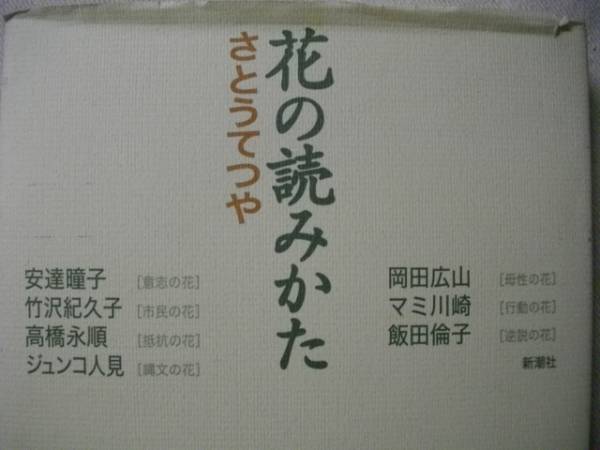 花の読みかた
さとうてつや
岡田広山 [母性の花]
マミ川崎 [行動の花]
飯田倫子 [逆説の花]
安達瞳子 [意志の花]
竹沢紀久子 [市民の花]
高橋永順 [抵抗の花]
ジュンコ人見 [縄文の花]
新潮社